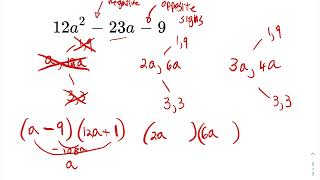 negative opposite signs
12a² − 23a − 9
1,9 1,9 1,9
a, 12a 2a, 6a 3a, 4a
3,3 3,3 3,3
(a − 9)(12a + 1) (2a )(6a )
−108a
a